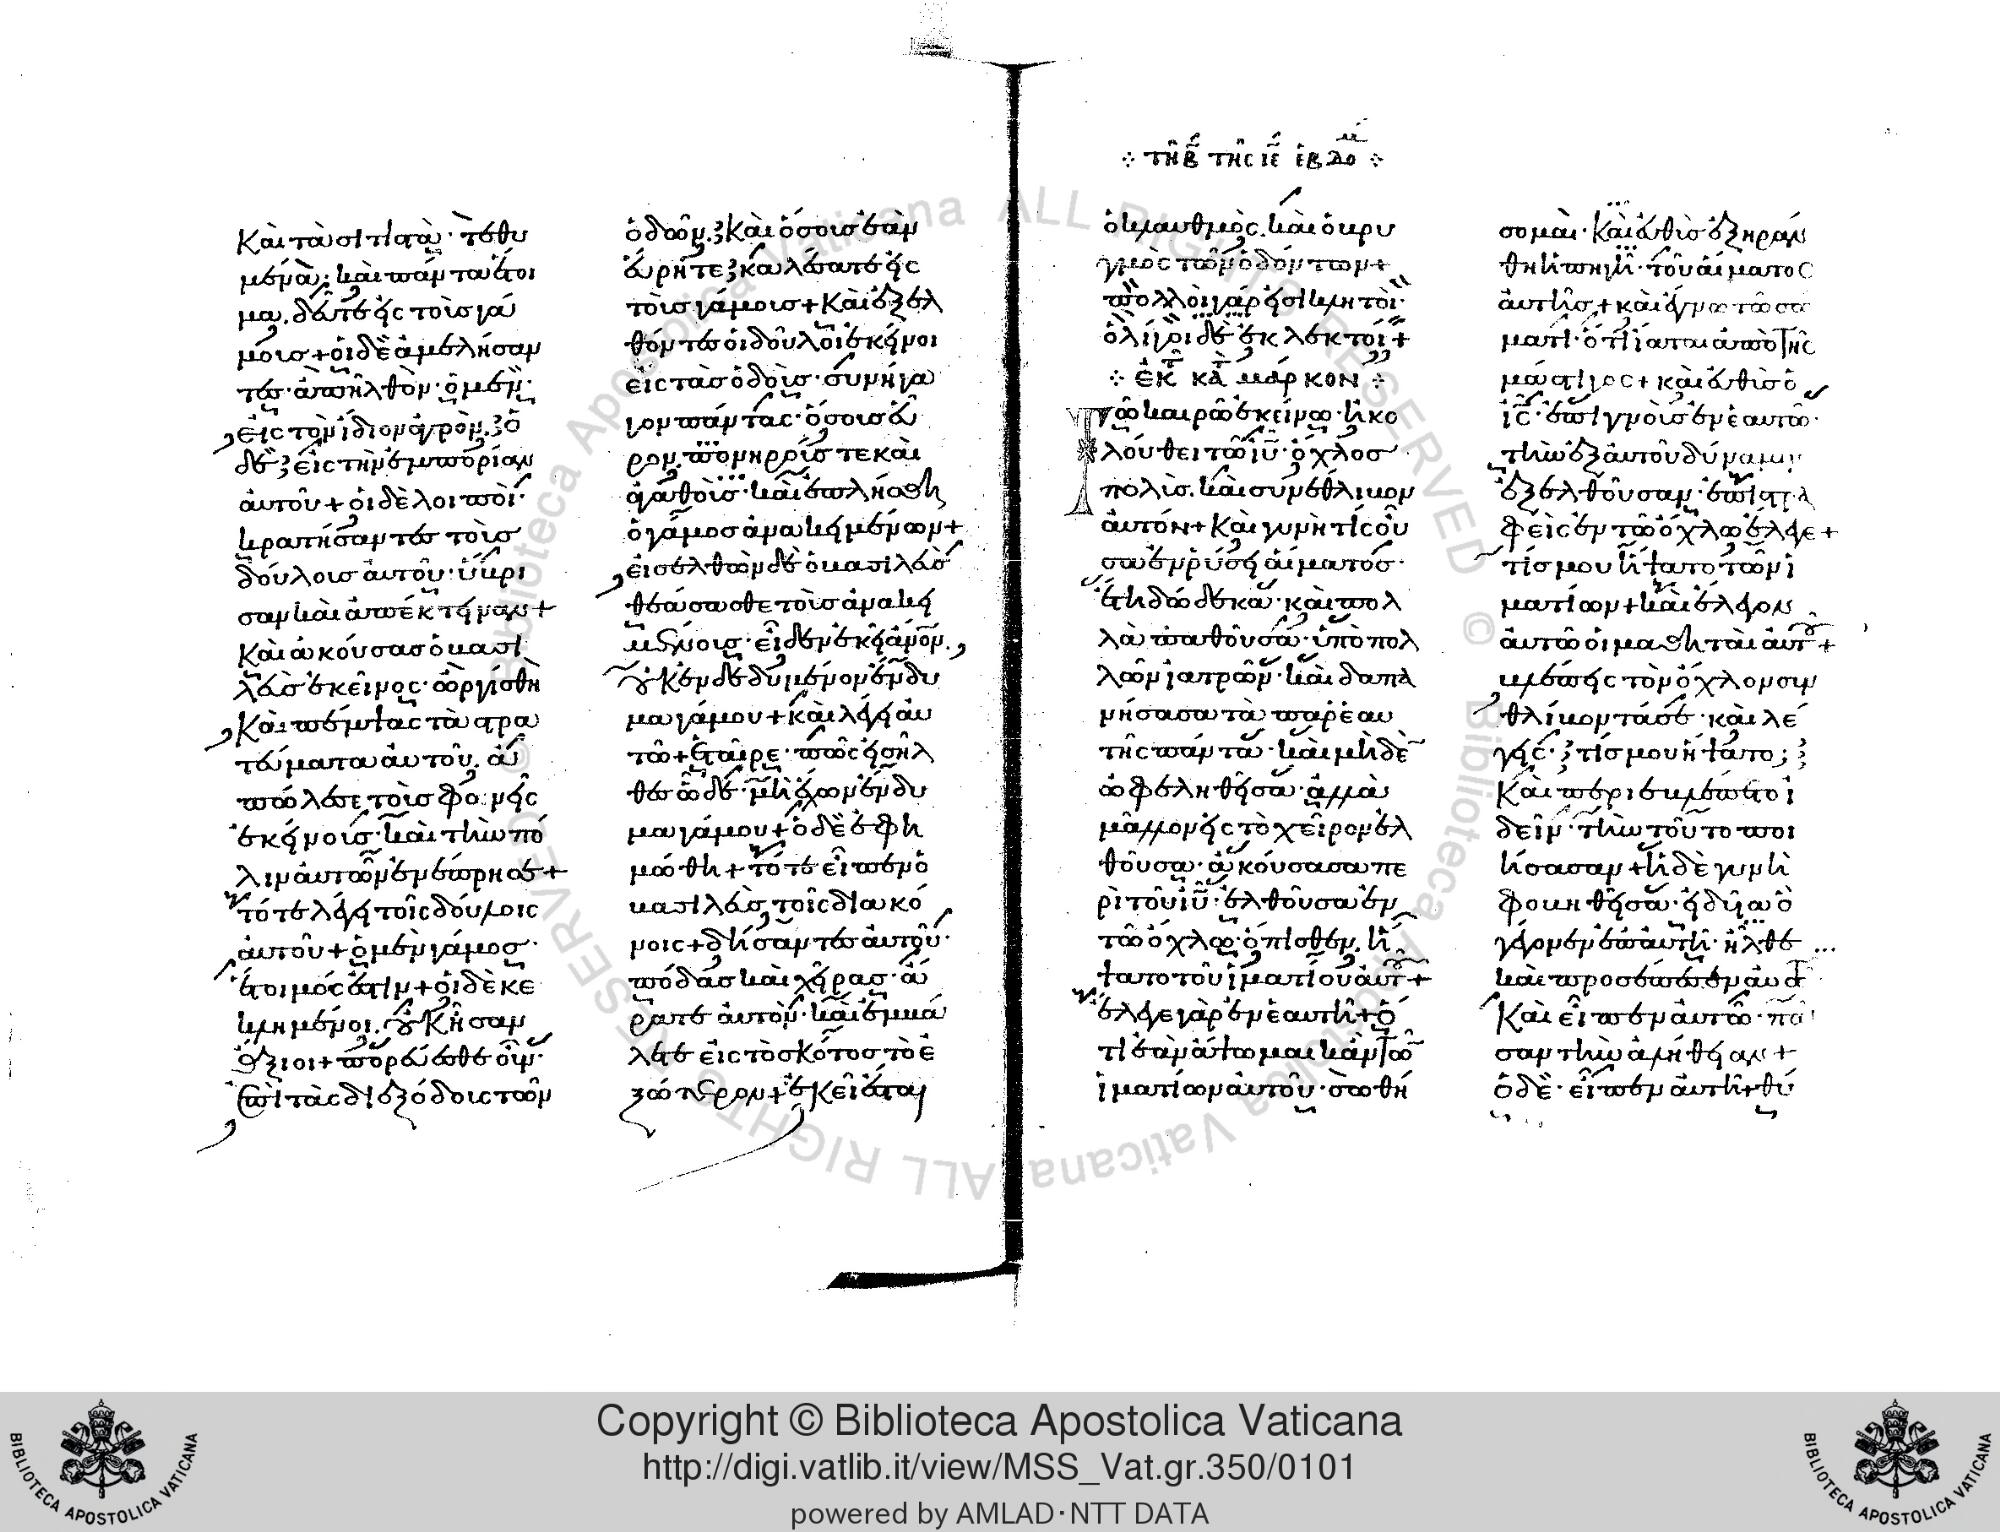 Καὶ τὰ σιτιστὰ· τεθυ
μένα· καὶ πάντα ἕτοι
μα. δεῦτε εἰς τοὺς γά
μους + οἱ δὲ ἀμελήσαν
τες· ἀπῆλθον· ὁ μὲν·
εἰς τὸν ἴδιον ἀγρόν. ὁ
δὲ εἰς τὴν ἐμπορίαν
αὐτοῦ + οἱ δὲ λοιποί·
κρατήσαντες τοὺς
δούλους αὐτοῦ· ὕβρι
σαν καὶ ἀπέκτειναν +
Καὶ ἀκούσας ὁ βασι
λεὺς ἐκεῖνος· ὠργίσθη
Καὶ πέμψας τὰ στρα
τεύματα αὐτοῦ. ἀ
πώλεσε τοὺς φονεῖς
ἐκείνους· καὶ τὴν πό
λιν αὐτῶν ἐνέπρησε +
τότε λέγει τοῖς δούλοις
αὐτοῦ + ὁ μὲν γάμος·
ἕτοιμός ἐστιν + οἱ δὲ κε
κλημένοι. οὐκ ἦσαν
ἄξιοι + πορεύεσθε οὖν·
ἐπὶ τὰς διεξόδους τῶν
ὁδῶν. Καὶ ὅσους ἐὰν
εὕρητε καλέσατε εἰς
τοὺς γάμους + Καὶ ἐξελ
θόντες οἱ δοῦλοι ἐκεῖνοι
εἰς τὰς ὁδούς· συνήγα
γον πάντας· ὅσους εὗ
ρον. πονηρούς τε καὶ
ἀγαθούς· καὶ ἐπλήσθη
ὁ γάμος ἀνακειμένων +
εἰσελθὼν δὲ ὁ βασιλεὺς
θεάσασθαι τοὺς ἀνακει
μένους· εἶδεν ἐκεῖ ἄνον.
οὐκ ἐνδεδυμένον ἔνδυ
μα γάμου + καὶ λέγει αὐ
τῶ + ἑταῖρε· πῶς εἰσῆλ
θες ὧδε· μὴ ἔχων ἔνδυ
μα γάμου + ὁ δὲ ἐφι
μώθη + τότε εἶπεν ὁ
βασιλεὺς τοῖς διακό
νοις + δήσαντες αὐτοῦ·
πόδας καὶ χεῖρας· ἄ
ρατε αὐτὸν· καὶ ἐκβά
λετε εἰς τὸ σκότος τὸ ἐ
ξώτερον + ἐκεῖ ἔσται
τῆ β τῆς ιε ἑβδομ
ὁ κλαυθμὸς. καὶ ὁ βρυ
γμὸς τῶν ὀδόντων +
πολλοὶ γάρ εἰσι κλητοί·
ὀλίγοι δὲ ἐκλεκτοί +
ἐκ τ κατὰ μάρκον
Τῶ καιρῶ ἐκείνω· ἠκο
λούθει τῶ ιυ· ὄχλος
πολύς. καὶ συνέθλιβον
αὐτόν + Καὶ γυνή τις οὖ
σα ἐν ῥύσει αἵματος·
ἔτη δώδεκα· καὶ πολ
λὰ παθοῦσα· ὑπὸ πολ
λῶν ἰατρῶν· καὶ δαπα
νήσασα τὰ παρ' ἑαυ
τῆς πάντα· καὶ μηδὲν
ὠφεληθεῖσα· ἀλλὰ
μᾶλλον εἰς τὸ χεῖρον ἐλ
θοῦσα· ἀκούσασα πε
ρὶ τοῦ ιυ· ἐλθοῦσα ἐν
τῶ ὄχλω· ὄπισθεν. ἥ
ψατο τοῦ ἱματίου αὐτοῦ +
ἔλεγε γὰρ ἐν ἑαυτῆ + ὅ
τι ἐὰν ἅψωμαι κἂν τῶν
ἱματίων αὐτοῦ· σωθή
σομαι· Καὶ εὐθὺς ἐξηράν
θη ἡ πηγὴ· τοῦ αἵματος
αὐτῆς + καὶ ἔγνω τῶ σώ
ματι· ὅτι ἴαται ἀπὸ τῆς
μάστιγος + καὶ εὐθὺς ὁ
ις· ἐπιγνοὺς ἐν ἑαυτῶ·
τὴν ἐξ αὐτοῦ δύναμιν
ἐξελθοῦσαν· ἐπιστρα
φεὶς ἐν τῶ ὄχλω ἔλεγε +
τίς μου ἥψατο τῶν ἱ
ματίων + καὶ ἔλεγον
αὐτῶ οἱ μαθηταὶ αὐτοῦ +
βλέπεις τὸν ὄχλον συν
θλίβοντά σε· καὶ λέ
γεις· τίς μου ἥψατο;
Καὶ περιεβλέπετο ἰ
δεῖν· τὴν τοῦτο ποι
ήσασαν + ἡ δὲ γυνὴ
φοβηθεῖσα· εἰδυῖα ὃ
γέγονεν ἐπ' αὐτῆ· ἦλθε
καὶ προσέπεσεν αὐτῶ
Καὶ εἶπεν αὐτῶ· πᾶ
σαν τὴν ἀλήθειαν +
ὁ δὲ· εἶπεν αὐτῆ + θύ
Copyright © Biblioteca Apostolica Vaticana
http://digi.vatlib.it/view/MSS_Vat.gr.350/0101
powered by AMLAD·NTT DATA
BIBLIOTECA APOSTOLICA VATICANA
BIBLIOTECA APOSTOLICA VATICANA
© Biblioteca Apostolica Vaticana ALL RIGHTS RESERVED © Biblioteca Apostolica Vaticana ALL RIGHTS RESERVED